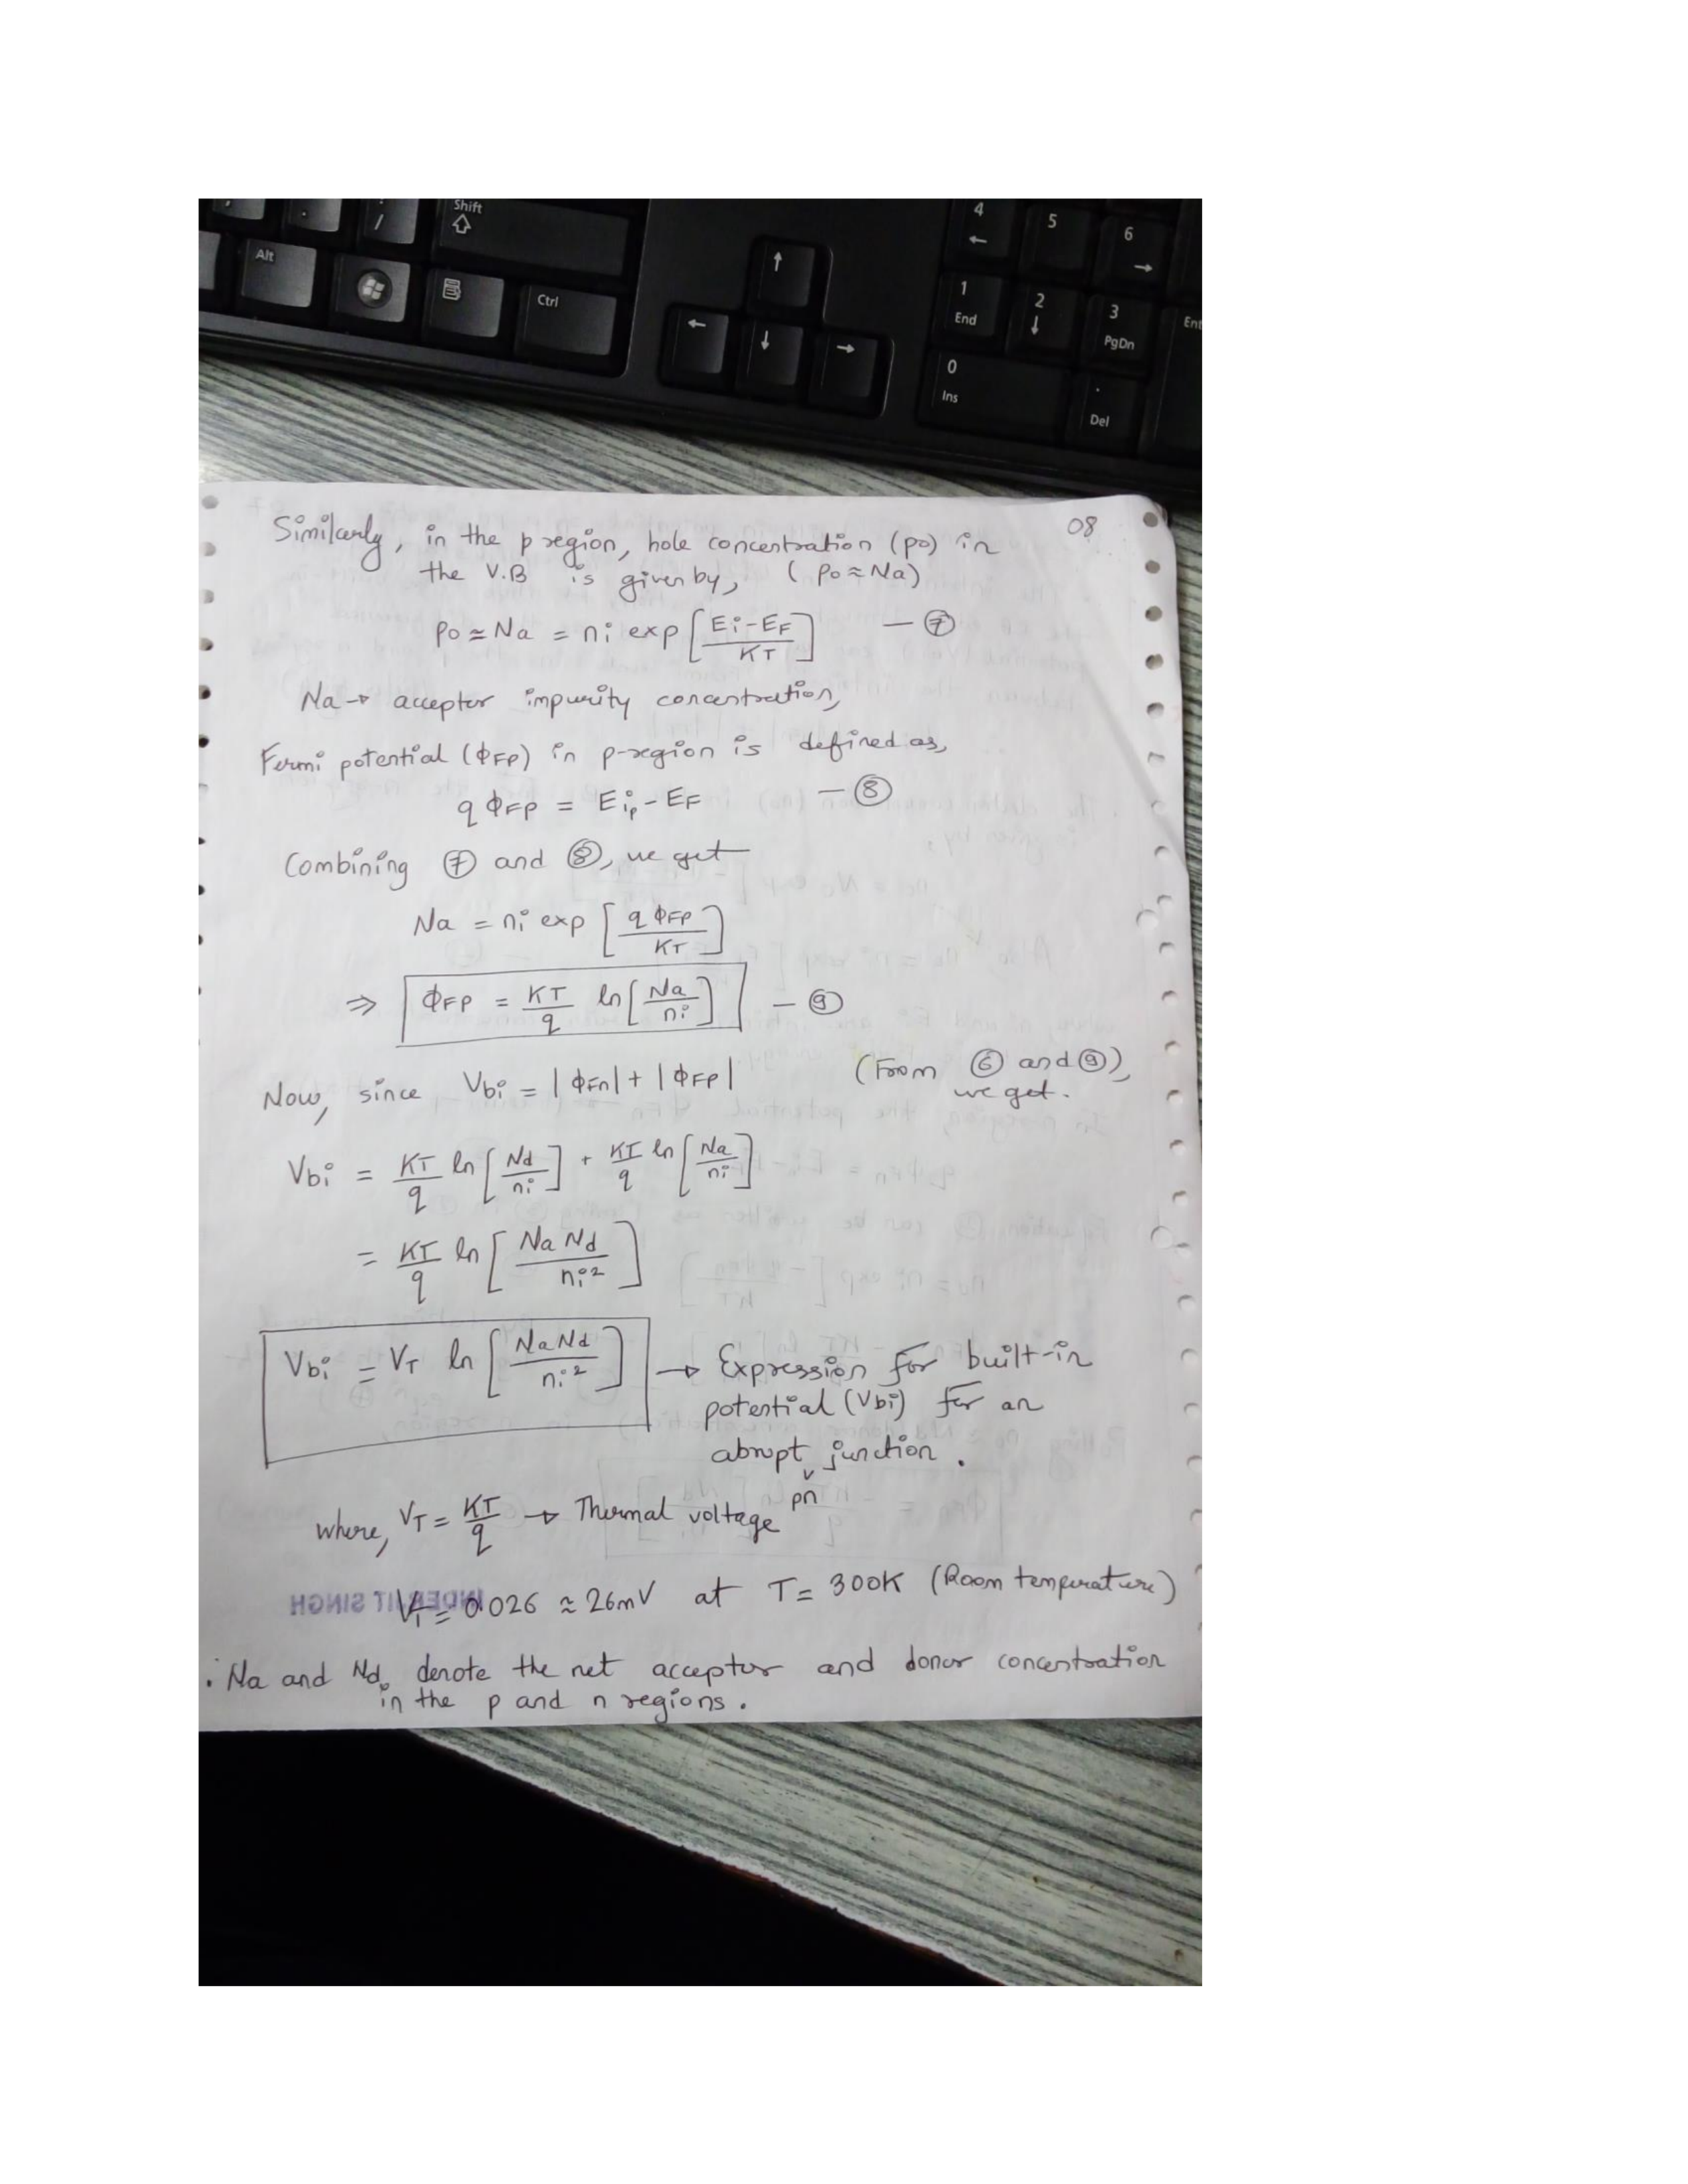 Shift
4
5
6
Alt
Ctrl
1
End
2
3
PgDn
Ent
0
Ins
.
Del
08
Similarly, in the p region, hole concentration (po) in
the V.B is given by, ( po ≈ Na)
po ≃ Na = ni exp [ (Ei - EF) / KT ] — ⑦
Na → acceptor impurity concentration,
Fermi potential (ΦFp) in p-region is defined as,
q ΦFp = Eip - EF — ⑧
Combining ⑦ and ⑧, we get
Na = ni exp [ q ΦFp / KT ]
⇒ ΦFp = KT/q ln [ Na / ni ] — ⑨
Now, since Vbi = |ΦFn| + |ΦFp| (From ⑥ and ⑨),
we get.
Vbi = KT/q ln [ Nd / ni ] + KT/q ln [ Na / ni ]
= KT/q ln [ Na Nd / ni² ]
Vbi = VT ln [ Na Nd / ni² ] → Expression for built-in
potential (Vbi) for an
abrupt pn junction .
where, VT = KT/q → Thermal voltage
VT = 0.026 ≈ 26mV at T = 300K (Room temperature)
INDERJIT SINGH
. Na and Nd, denote the net acceptor and donor concentration
in the p and n regions .